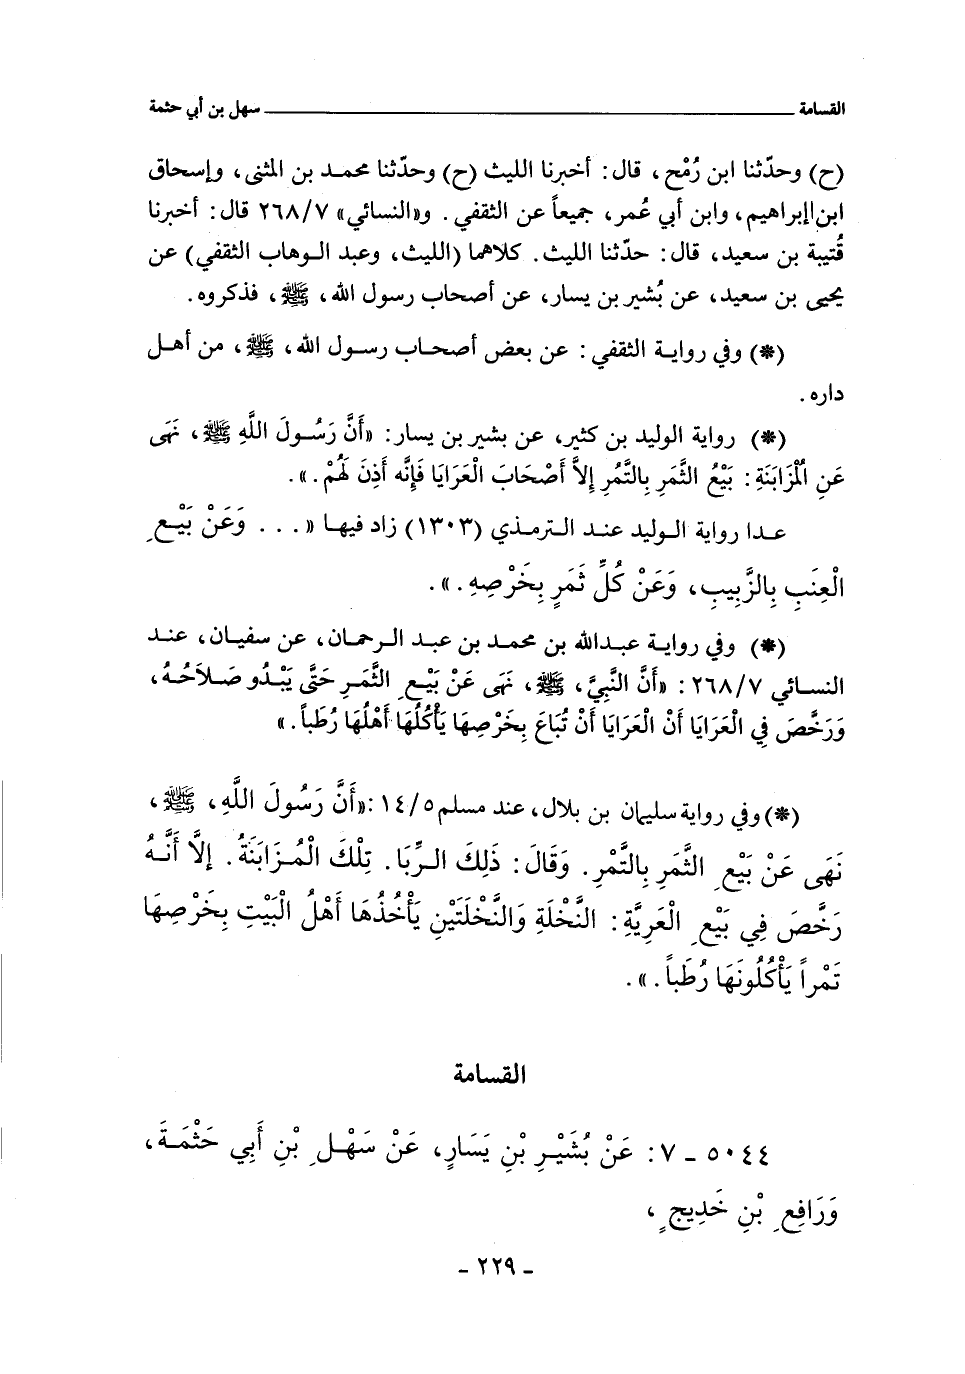 القسامة ــــــــــ سهل بن أبي حثمة
(ح) وحدّثنا ابن رُمْح، قال: أخبرنا الليث (ح) وحدّثنا محمـد بن المثنى، وإسحاق
ابن إبراهيم، وابن أبي عُمر، جميعاً عن الثقفي. و«النسائي» ٢٦٨/٧ قال: أخبرنا
قُتيبة بن سعيد، قال: حدّثنا الليث. كلاهما (الليث، وعبد الـوهاب الثقفي) عن
يحيى بن سعيد، عن بُشير بن يسار، عن أصحاب رسول الله، ﷺ، فذكروه.
(*) وفي روايـة الثقفي: عن بعض أصحـاب رسـول الله، ﷺ، من أهـل
داره.
(*) رواية الوليد بن كثير، عن بشير بن يسار: «أَنَّ رَسُـولَ اللَّهِ ﷺ، نَهَى
عَنِ الْمُزَابَنَةِ: بَيْعُ الثَّمَرِ بِالتَّمْرِ إِلاَّ أَصْحَابَ الْعَرَايَا فَإِنَّه أَذِنَ لَهُمْ.».
عـدا رواية الـوليد عنـد الترمـذي (١٣٠٣) زاد فيهـا «... وَعَنْ بَيْـعِ
الْعِنَبِ بِالزَّبِيبِ، وَعَنْ كُلِّ ثَمَرٍ بِخَرْصِهِ.».
(*) وفي روايـة عبـدالله بن محمـد بن عبـد الـرحمان، عن سفيـان، عنـد
النسـائي ٢٦٨/٧: «أَنَّ النَّبِيَّ، ﷺ، نَهَى عَنْ بَيْعِ الثَّمَرِ حَتَّى يَبْدُو صَلاَحُهُ،
وَرَخَّصَ فِي الْعَرَايَا أَنْ الْعَرَايَا أَنْ تُبَاعَ بِخَرْصِهَا يَأْكُلُهَا أَهْلُهَا رُطَباً.»
(*) وفي رواية سليمان بن بلال، عند مسلم ١٤/٥: «أَنَّ رَسُولَ اللَّهِ، ﷺ،
نَهَى عَنْ بَيْعِ الثَّمَرِ بِالتَّمْرِ. وَقَالَ: ذَلِكَ الـرِّبَا. تِلْكَ الْمُـزَابَنَةُ. إِلَّا أَنَّـهُ
رَخَّصَ فِي بَيْعِ الْعَرِيَّةِ: النَّخْلَةِ وَالنَّخْلَتَيْنِ يَأْخُذُهَا أَهْلُ الْبَيْتِ بِخَرْصِهَا
تَمْراً يَأْكُلُونَهَا رُطَباً.».
القسامة
٥٠٤٤ - ٧: عَنْ بُشَيْـرِ بْنِ يَسَارٍ، عَنْ سَهْـلِ بْنِ أَبِي حَثْمَـةَ،
وَرَافِعِ بْنِ خَدِيجٍ،
- ٢٢٩ -